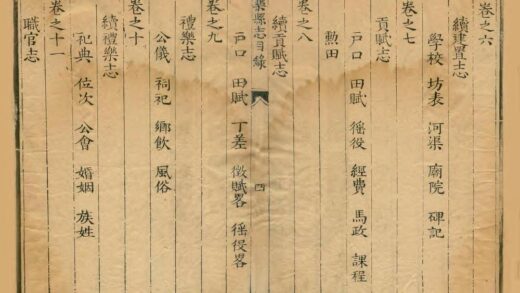 卷之六
續建置志
學校 坊表 河渠 廟院 碑記
卷之七
貢賦志
戸口 田賦 徭役 經費 馬政 課程
勲田
續貢賦志
卷之八
縣志目錄
四
戸口 田賦 丁差 徵賦畧 徭役畧
卷之九
禮樂志
公儀 祠祀 鄉飲 風俗
卷之十
續禮樂志
祀典 位次 公會 婚姻 族姓
卷之十一
職官志